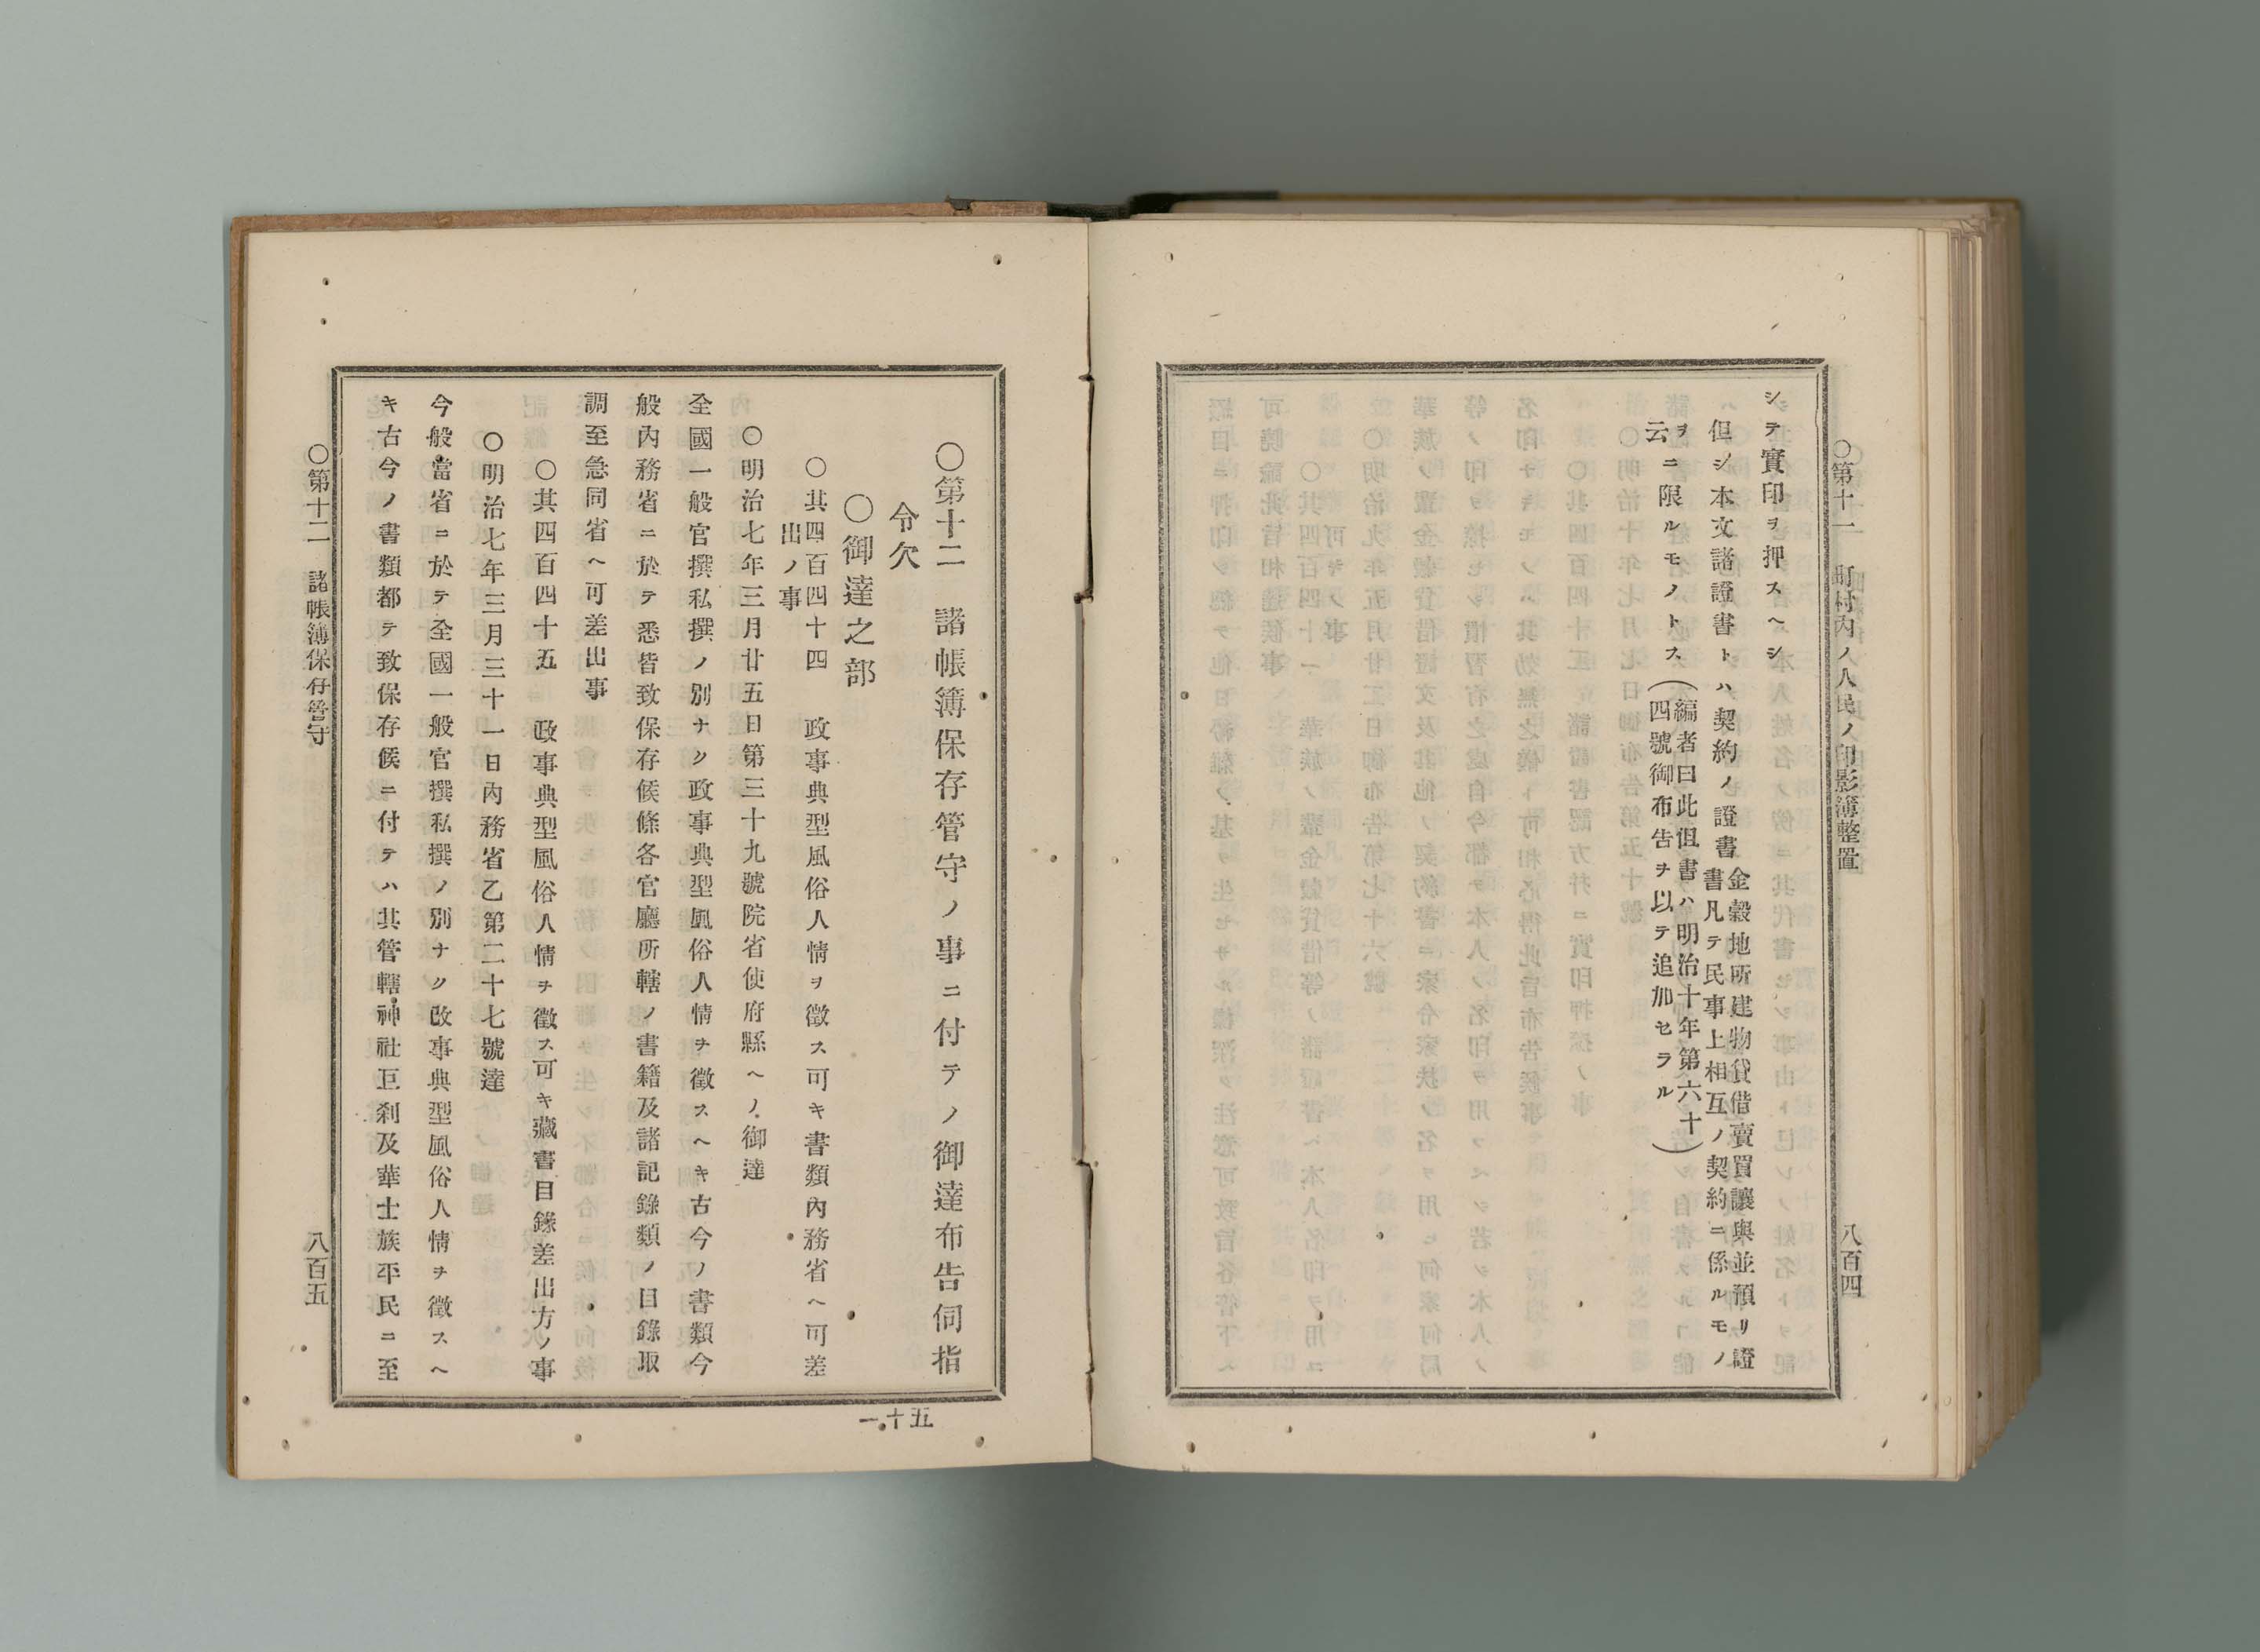 ○第十一　町村內ノ人民ノ印影簿整置
八百四
シテ實印ヲ押スヘシ
但シ本文諸證書トハ契約ノ證書
金穀地所建物貸借賣買讓與並預リ證
書凡テ民事上相互ノ契約ニ係ルモノ
ヲ
云ニ限ルモノトス
（編者曰此但書ハ明治十年第六十
四號御布吿ヲ以テ追加セラル）
○第十二　諸帳簿保存管守ノ事ニ付テノ御達布吿伺指
令欠
○御達之部
○其四百四十四　政事典型風俗人情ヲ徵ス可キ書類內務省ヘ可差
出ノ事
○明治七年三月廿五日第三十九號院省使府縣ヘノ御達
全國一般官撰私撰ノ別ナク政事典型風俗人情ヲ徵スヘキ古今ノ書類今
般內務省ニ於テ悉皆致保存候條各官廳所轄ノ書籍及諸記錄類ノ目錄取
調至急同省ヘ可差出事
○其四百四十五　政事典型風俗人情ヲ徵ス可キ藏書目錄差出方ノ事
○明治七年三月三十一日內務省乙第二十七號達
今般當省ニ於テ全國一般官撰私撰ノ別ナク政事典型風俗人情ヲ徵スヘ
キ古今ノ書類都テ致保存候ニ付テハ其管轄神社巨刹及華士族平民ニ至
○第十二　諸帳簿保存管守
八百五
五十一